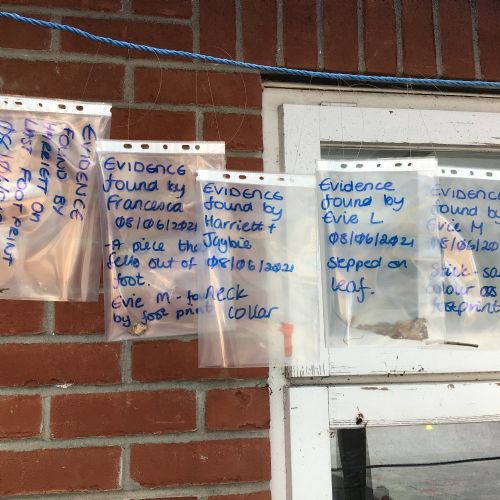 EVIDENCE
FOUND BY
HARRIET ON
LAST FOOTPRINT
EVIDENCE
found by
Francesca
08/06/2021
-A piece tha
fell out of
foot.
Evie M - found
by foot print
EVIDENCE
found by
Harriett +
08/06/2021
Neck
collar
Evidence
found by
Evie L
08/06/2021
stepped on
leaf.
EVIDENCE
found by
Evie M
08/06/202
Stick - sa
colour as
footprint